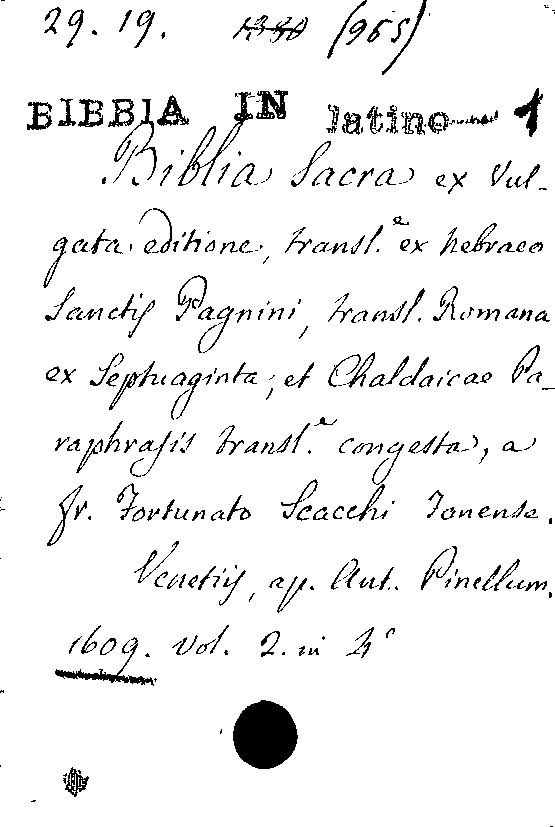 29. 19. 1380 (965)
BIBBIA IN latino 1
Biblia Sacra ex Vul-
gata editione, transl.e ex hebraeo
Sanctis Pagnini, transl. Romana
ex Septuaginta, et Chaldaicae Pa-
raphrasis transl.e congesta, a
fr. Fortunato Scacchi Ianense.
Venetiis, ap. Ant. Pinellum.
1609. vol. 2. in 4°